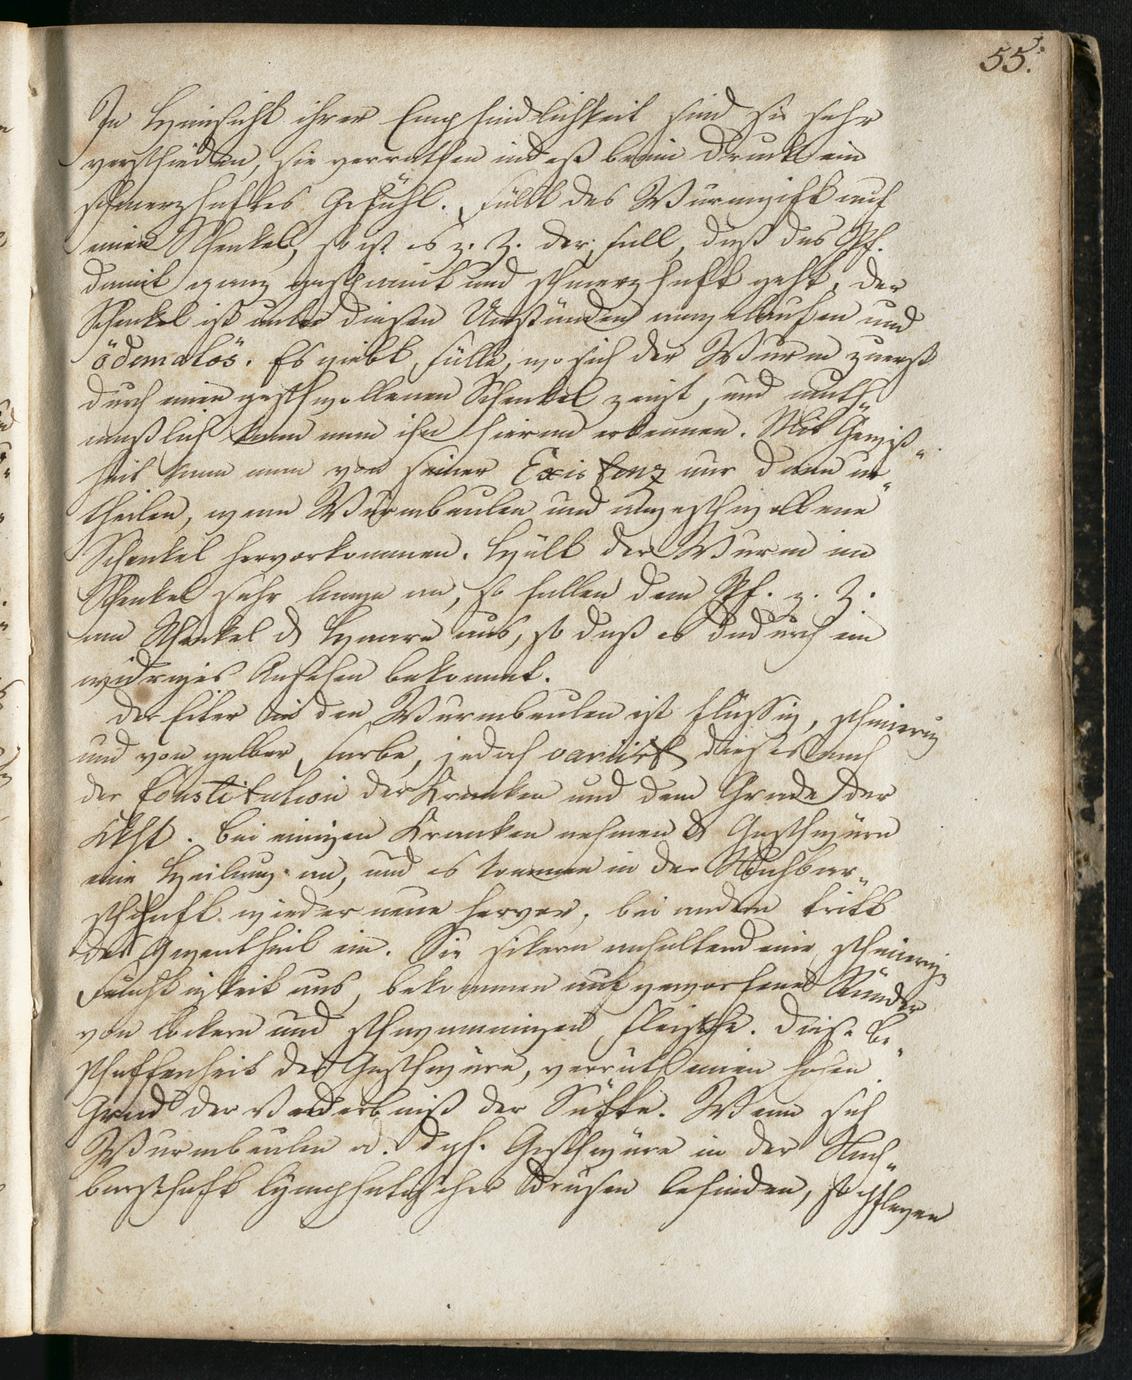 55.
In Hinsicht ihrer Empfindlichkeit sind sie sehr
verschieden, sie verrathen indeß beim Druck ein
schmerzhaftes Gefühl. Fällt das Wurmgift auf
einen Schenkel, so ist es z. Z. der Fall, daß das Pf.
damit ganz gespannt und schmerzhaft geht, der
Schenkel ist unter diesen Umständen angelaufen und
ödematös. Es giebt Fälle, wo sich der Wurm zuerst
durch einen geschwollenen Schenkel zeigt, und muth„
maßlich kann man ihn hieran erkennen. Mit Gewiß„
heit kann man von seiner Existenz nur dann ur„
theilen, wenn Wurmbeulen und angeschwollene
Schenkel hervorkommen. Hält der Wurm im
Schenkel sehr lange an, so fallen dem Pf. z. Z.
am Schenkel d Haare aus, so daß es dadurch ein
widriges Ansehen bekommt.
Der Eiter in den Wurmbeulen ist flüssig, schmierig
und von gelber Farbe, jedoch variirt dieses nach
der Constitution der Kranken und dem Grade der
Kkht. Bei einigen Kranken nehmen d Geschwüre
eine Heilung an, und es kommen in der Nachbar„
schaft wieder neue hervor, bei andern tritt
das Gegentheil ein. Sie sikern anhaltend eine schmierige
Feuchtigkeit aus, bekommen aufgeworfene Ränder
von lockern und schwammigen Fleische. Diese Be„
schaffenheit der Geschwüre, verräth einen hohen
Grad der Verderbniß der Säfte. Wenn sich
Wurmbeulen od. dgl. Geschwüre in der Nach„
barschaft lymphatischer Drüsen befinden, so pflegen